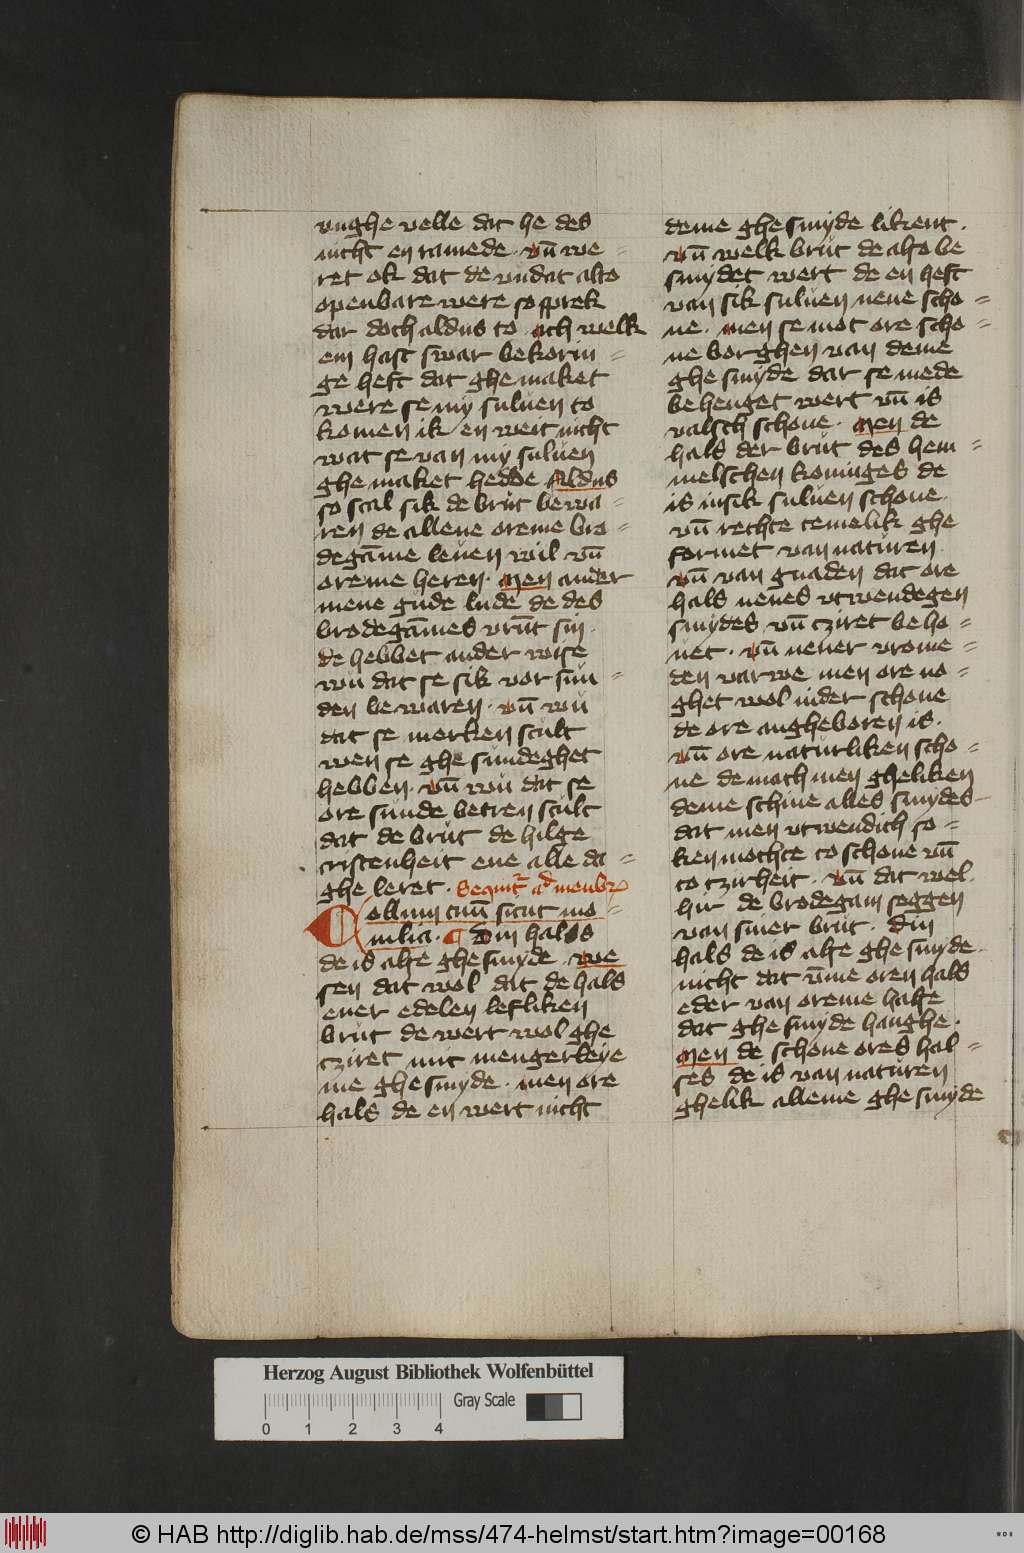 vnghe velle dat he des
nicht en ramede · vn̄ we =
ret ok dat de vndat also
openbare were so sprek
dar doch aldus to · ach welk
em hast swar bekorin =
ge heft dat ghe maket
were se my suluen to
komen ik en weit nicht
wat se van my suluen
ghe maket hedde Aldus
so scal sik de brut bewa =
ren de allene oreme bro =
degāme leuen wil vn̄
oreme heren · Men ander
mene gude lude de des
brodegāmes vrūt sin ·
de hebbet ander wise
wu dat se sik vor sun =
den be waren · vn̄ wu
dat se merken scult
wen se ghe sundeghet
hebben · vn̄ wu dat se
ore sunde betren scult
dat de brut de hilge
cristenheit ene alle da =
ghe leret · Sequit͛ ad membr
Collum tuū sicut mo =
nilia · ¶ Din hals
de is alse ghe smyde · we
sen dat wol dat de hals
ener edelen lefliken
brut de wert wol ghe
tziret mit mengerleye
me ghe smyde · men ore
hals de en wert nicht
deme ghe smyde likent ·
vn̄ welk brut de also be
smydet wert de en heft
van sik suluen nene scho =
ne · men se mot ore scho =
ne borghen van deme
ghe smyde dar se mede
be henget wert vn̄ is
valsch schone · Men de
hals der brut des hem =
melschen koninges de
is insik suluen schone ·
vn̄ rechte temelik ghe
formet van naturen
vn̄ van gnaden dat ore
hals nenes vtwendegen
smydes vn̄ tziret beho =
uet · vn̄ nener vrome =
den varwe men ore no =
ghet wol inder schone
de ore angheboren is ·
vn̄ ore naturliken scho =
ne de mach men gheliken
deme schine alles smydes
dat men vtwendich so =
ken mochte to schone vn̄
to tzirheit · vn̄ dat wel
hir de brodegam seggen
van siner brut · Din
hals de is alse ghe smyde ·
nicht dat v̄me oren hals
eder van oreme halse
dat ghe smyde hanghe ·
Men de schone ores hal =
ses de is van naturen
ghelik alleme ghe smyde
Herzog August Bibliothek Wolfenbüttel
Gray Scale
0 1 2 3 4
© HAB http://diglib.hab.de/mss/474-helmst/start.htm?image=00168
WDB